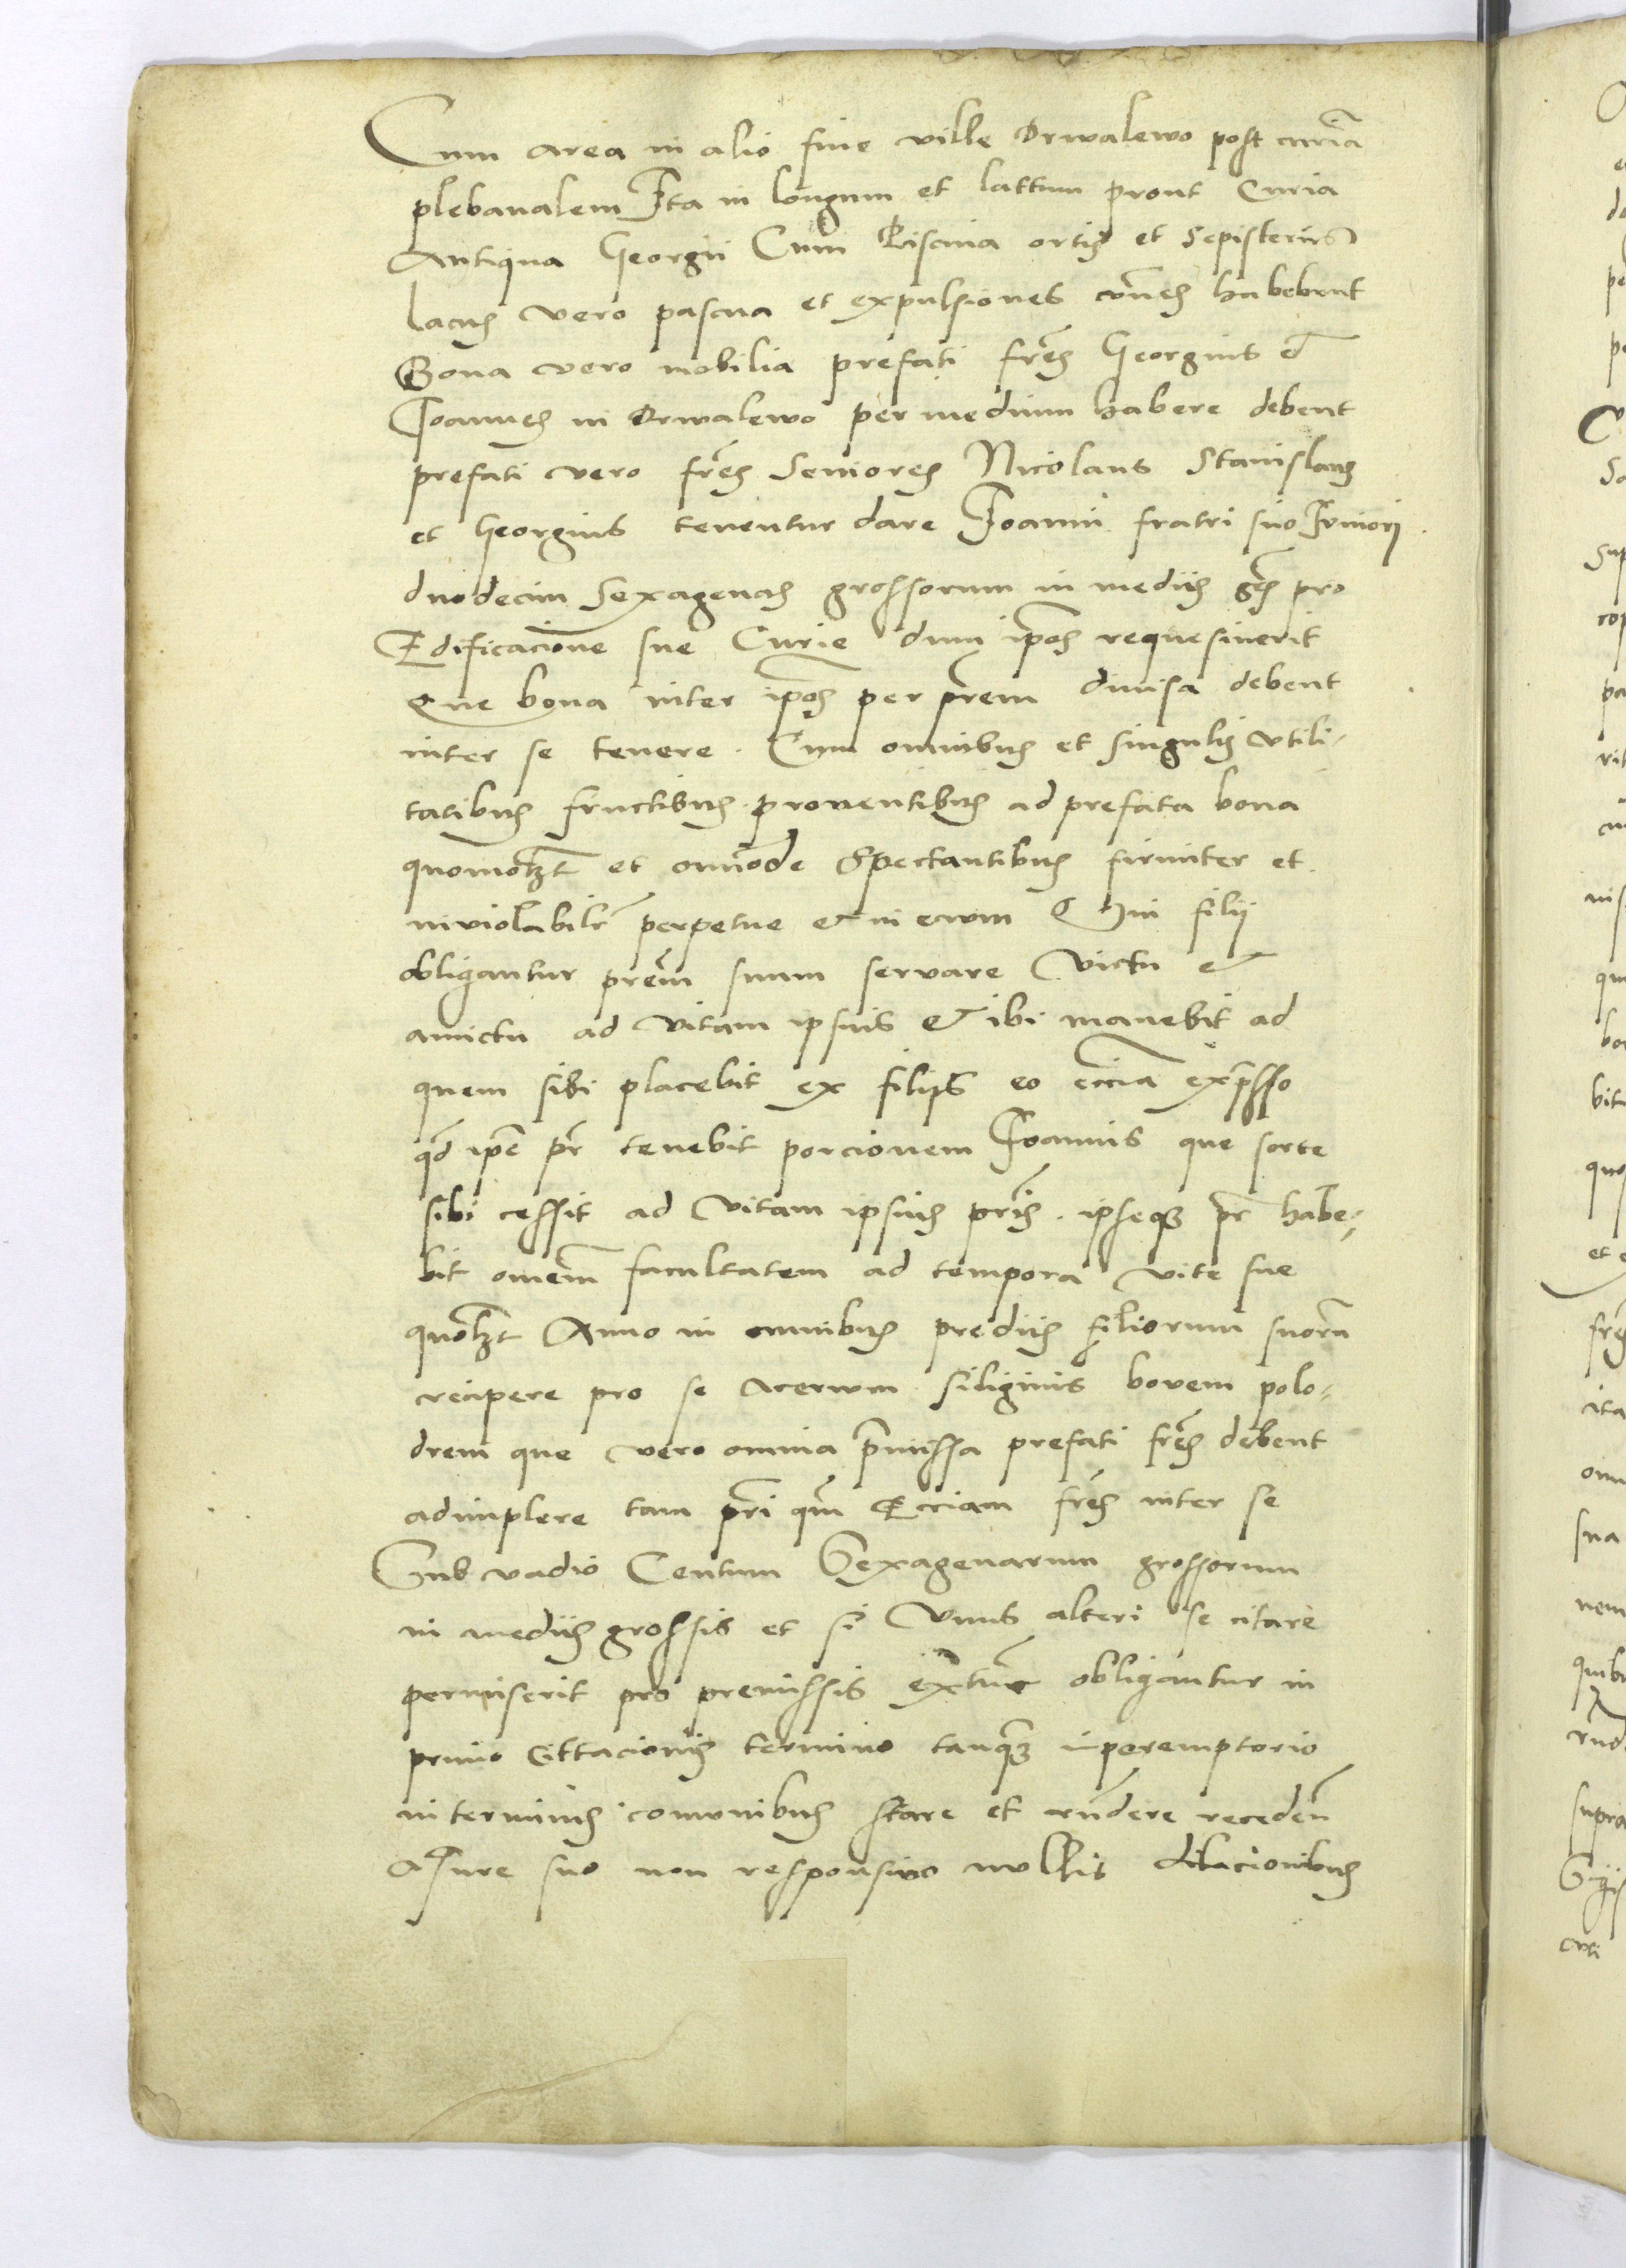 Cum area in alio fine ville Orwalewo post curiã
plebanalem Ita in longum et lattum prout Curia
Antiqua Georgii Cum Piscina ortis et Sepisteriis
lacus vero pascua et expulsiones cõnes habebunt
Bona vero mobilia prefati frẽs Georgius et
Joannes in Orwalewo per medium habere debent
prefati vero frẽs Seniores Nicolaus Stanislaus
et Georgius tenentur dare Joanni fratri suo Juniori
duodecim Sexagenas grossorum in mediis gr̃s pro
Edificacione sue Curie dum ip̃os requesiuerit
Que bona inter ip̃os per pr̃em diuisa debent
inter se tenere. Cum omnibus et singulis vtili-
tatibus fructibus prouentibus ad prefata bona
quomol3t et omĩode Spectantibus firmiter et
inviolabilr̃ perpetue et in ewum Qui filii
obligantur pr̃em suum servare Victu et
amictu ad Vitam ipsius et ibi manebit ad
quem sibi placebit ex filiis eo ecciã exp̃sso
qd̃ ip̃e pr̃ tenebit porcionem Joannis que sorte
sibi cessit ad Vitam ipsius pr̃is. ipseq3 pr̃ habe-
bit om̃em facultatem ad tempora Vite sue
quol3t Anno in omnibus prediis filiorum suorũ
recipere pro se acerwm siliginis bovem polo-
drem que vero omnia p̃missa prefati frẽs debent
adimplere tam pr̃i qm̃ Ecciam frẽs inter se
Sub vadio Centum Sexagenarum grossorum
in mediis grossis et si Vnus alteri se citare
permiserit pro premissis extũc obligantur in
primo Cittacionis termino tanq3 in peremptorio
in terminis comunibus stare et rñdere recedeñ
A Jure suo non responsiuo nullis dilacionibus